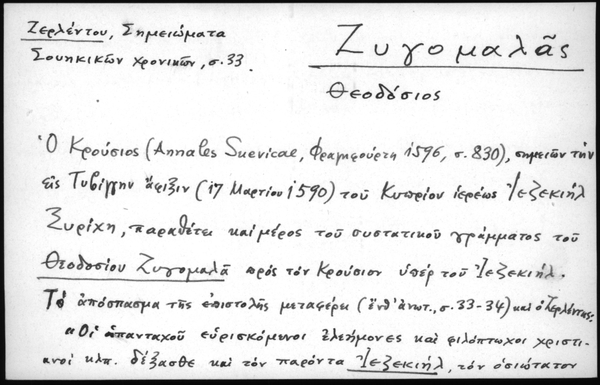 Ζερλέντου, Σημειώματα
Σουηκικῶν χρονικῶν, σ. 33.
Ζυγομαλᾶς
Θεοδόσιος
Ὁ Κρούσιος (Annales Suevicae, Φραγκφούρτη 1596, σ. 830), σημειῶν τὴν
εἰς Τυβίγγην ἄφιξιν (17 Μαρτίου 1590) τοῦ Κυπρίου ἱερέως Ἰεζεκιὴλ
Ξυρίχη, παραθέτει καὶ μέρος τοῦ συστατικοῦ γράμματος τοῦ
Θεοδοσίου Ζυγομαλᾶ πρὸς τὸν Κρούσιον ὑπὲρ τοῦ Ἰεζεκιήλ.
Τὸ ἀπόσπασμα τῆς ἐπιστολῆς μεταφέρει (ἔνθ' ἀνωτ., σ. 33-34) καὶ ὁ Ζερλέντης:
«Οἱ ἁπανταχοῦ εὑρισκόμενοι ἐλεήμονες καὶ φιλόπτωχοι χριστι-
ανοὶ κλπ. δέξασθε καὶ τὸν παρόντα Ἰεζεκιήλ, τὸν ὁσιώτατον